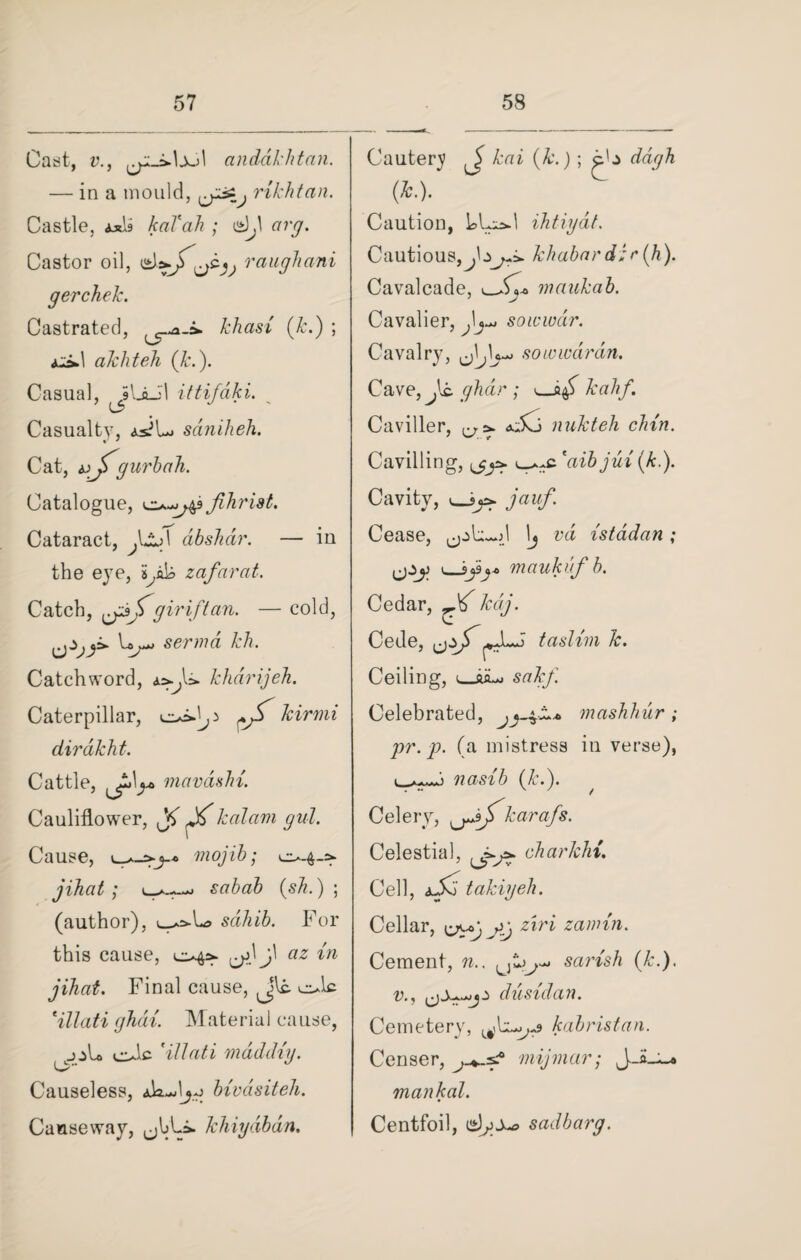 57
58
Cast, v., انداختن andákhtan.
— in a mould, ریختن ríkhtan.
Castle, قلعه kal'ah ; ارگ arg.
Castor oil, روغن گرچک raughani
gerchek.
Castrated, خصی khasí (k.) ;
اخته akhteh (k.).
Casual, اتفاقی ittifáki.
Casualty, سانحه sániheh.
Cat, گربه gurbah.
Catalogue, فهرست fihrist.
Cataract, آبشار ábshár. — in
the eye, ظفرة zafarat.
Catch, گرفتن giriftan. — cold,
سرما خوردن sermá kh.
Catchword, خارجه khárijeh.
Caterpillar, کرم دراخت kirmi
dirákht.
Cattle, مواشی maváshí.
Cauliflower, کلم گل kalam gul.
Cause, موجب mojib; جهت
jihat ; سبب sabab (sh.) ;
(author), صاحب sáhib. For
this cause, از این جهت az ín
jihat. Final cause, علت غائی
'illati gháí. Material cause,
علت مادی 'illati máddíy.
Causeless, بیواسطه bívásiteh.
Causeway, خیابان khiyábán.
Cautery کی kai (k.) ; داغ dágh
(k.).
Caution, احتیاط ihtiyát.
Cautious, خبردار khabardár (h).
Cavalcade, موکب maukab.
Cavalier, سوار sowwár.
Cavalry, سواران sowwárán.
Cave, غار ghár ; کهف kahf.
Caviller, نکته چین nukteh chín.
Cavilling, عیب جوی 'aib júí (k.).
Cavity, جوف jauf.
Cease, وا ایستادن vá ístádan ;
موقوف بردن maukúf b.
Cedar, کاج káj.
Cede, تسلیم کردن taslím k.
Ceiling, سقف sakf.
Celebrated, مشهور mashhúr ;
pr. p. (a mistress in verse),
نسیب nasíb (k.).
Celery, کرفس karafs.
Celestial, چرخی charkhí.
Cell, تکیه takiyeh.
Cellar, زیر زمین zíri zamín.
Cement, n., سریش sarísh (k.).
v., دوسیدن dúsídan.
Cemetery, قبرستان kabristan.
Censer, مجمر mijmar; منقل
mankal.
Centfoil, صدبرگ sadbarg.